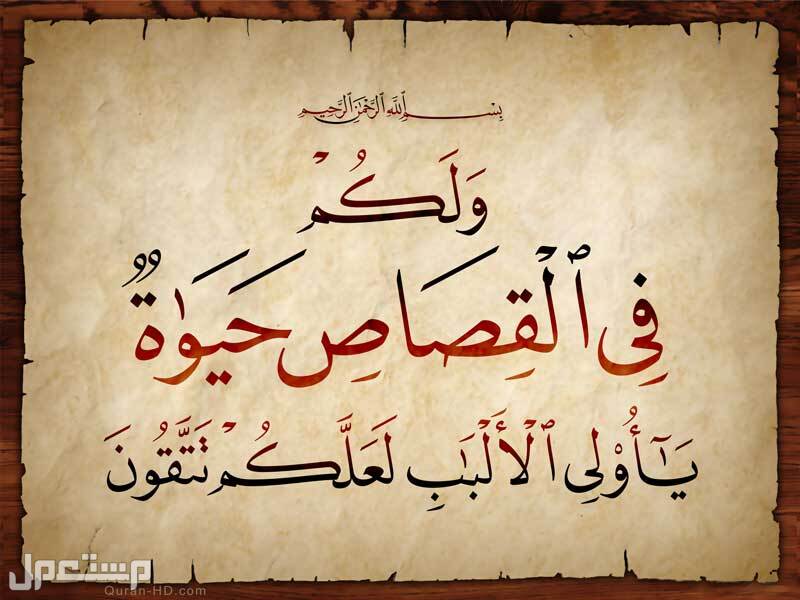 بِسْمِ ٱللَّهِ ٱلرَّحْمَٰنِ ٱلرَّحِيمِ
وَلَكُمْ
فِى ٱلْقِصَاصِ حَيَوٰةٌ
يَـٰٓأُو۟لِى ٱلْأَلْبَـٰبِ لَعَلَّكُمْ تَتَّقُونَ
مستعمل
Quran-HD.com